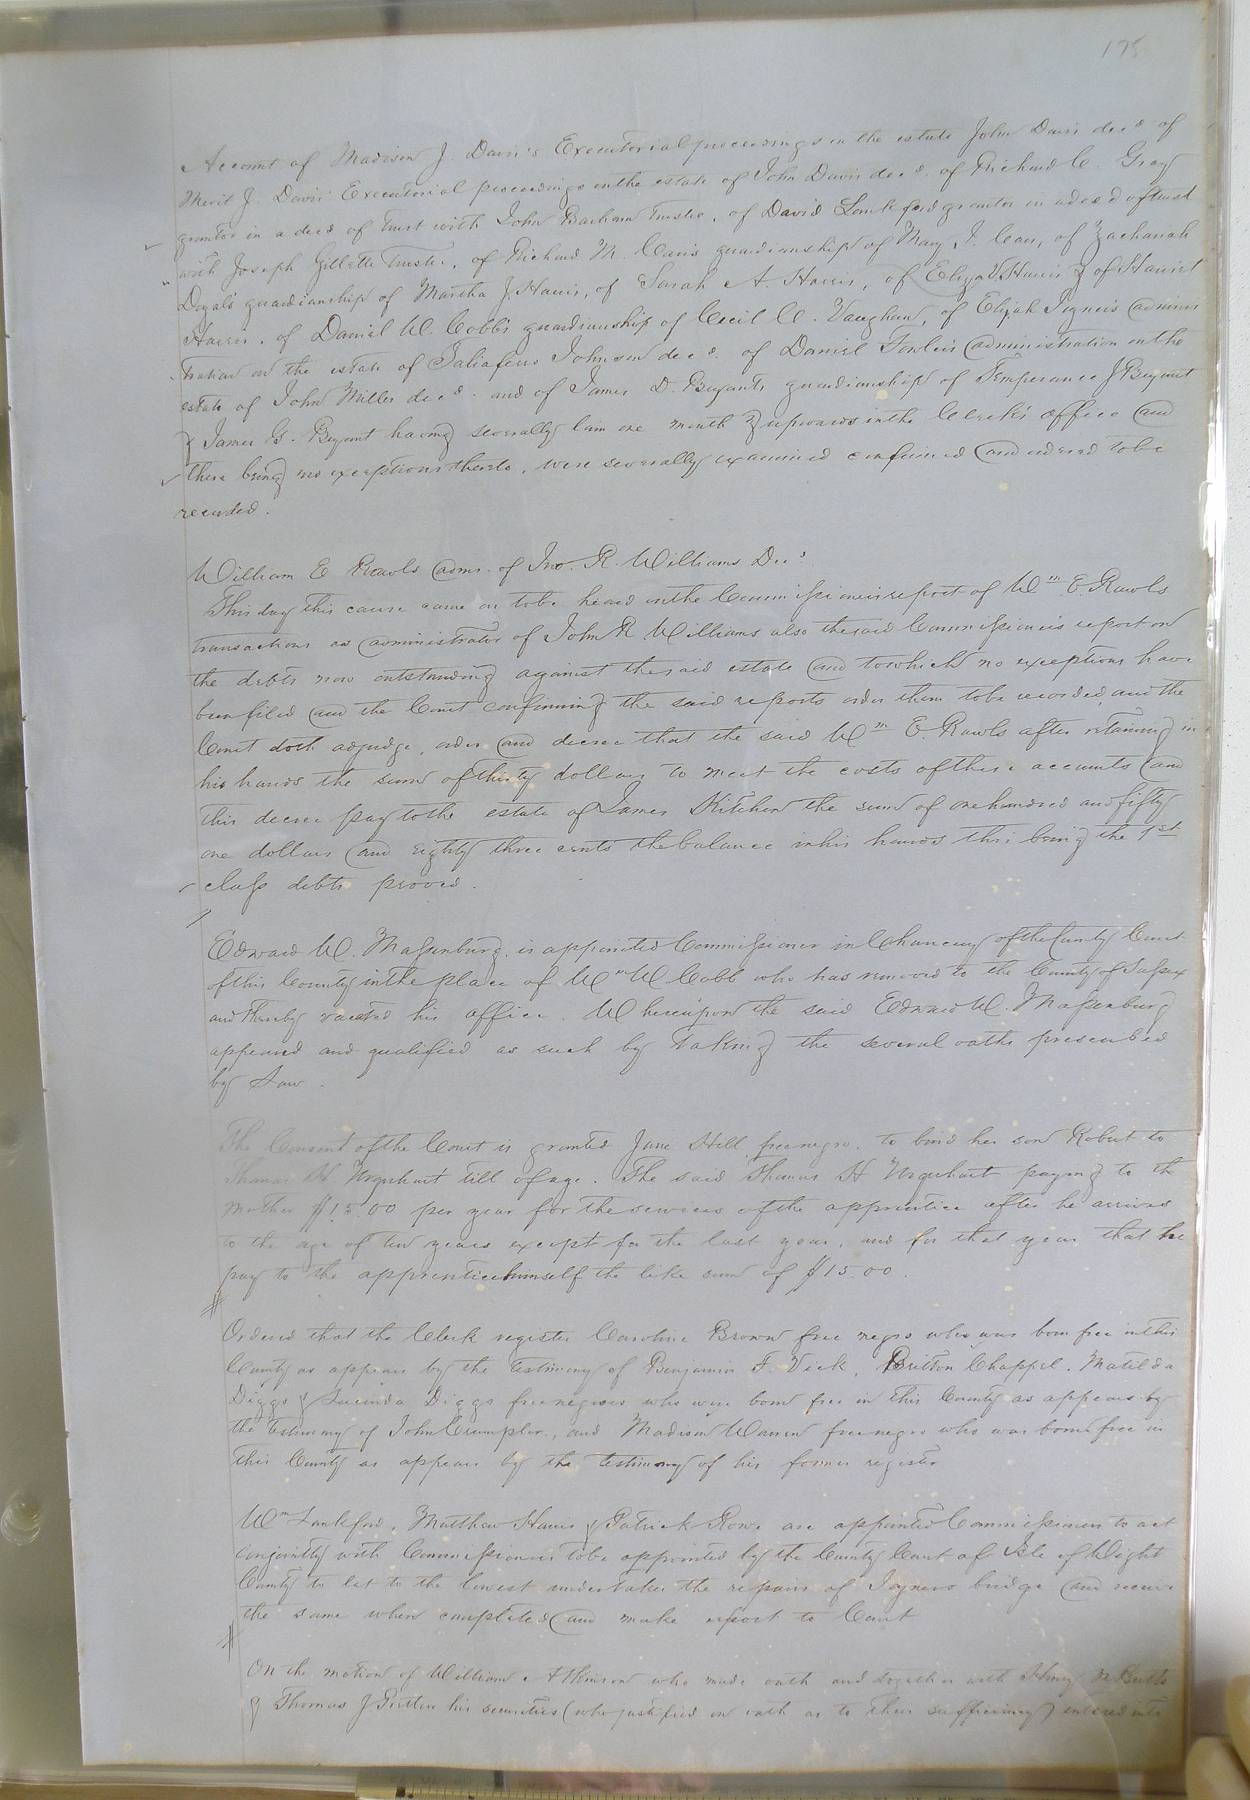 175
Account of Madison J. Davis's Executorial proceedings on the estate John Davis decd. of
Merit J. Davis' Executorial proceedings on the estate of John Davis decd. of Richard C. Gray
grantor in a deed of trust with John Barham Trustee, of David Lankford grantor in a deed of trust
with Joseph Gillette Trustee, of Richard M. Carr's guardianship of Mary J. Carr, of Zachariah
guardianship of Martha J. Harris, of Sarah A. Harris, of Eliza Harris & of Harriet
Harris, of Daniel W. Cobb's guardianship of Cecil C. Vaughan, of Elijah Joyner's adminis
tration on the estate of Johnson decd. of Daniel Fowler's administration on the
estate of John Miller decd. and of James D. Bryant's guardianship of Temperance J Bryant
& James G. Bryant having severally lain one month & upwards in the Clerk's office and
there being no exceptions thereto, were severally examined confirmed and ordered to be
recorded.
William E Rawls admr. of Jno. R. Williams Decd
This day this cause came on to be heard on the Commissioners report of Wm. E. Rawls
transactions as administrator of John R Williams also the said Commissioners report on
the debts now outstanding against the said estate and to which no exceptions have
been filed and the Court confirming the said reports order them to be recorded, and the
Court doth adjudge, order and decree that the said Wm E Rawls after retaining in
his hands the sum of thirty dollars to meet the costs of these accounts and
this decree pay to the estate of James Kitchen the sum of one hundred and fifty
one dollars and eighty three cents the balance in his hands this being the 1st
class debts proved.
Edward W. Massenburg is appointed Commissioner in Chancery of the County Court
of this County in the place of Wm W Cobb who has removed to the County of Sussex
and thereby vacated his office. Whereupon the said Edward W. Massenburg
appeared and qualified as such by taking the several oaths prescribed
by Law.
The Consent of the Court is granted Jane Hill free negro, to bind her son Robert to
Thomas H Urquhart till of age. The said Thomas H Urquhart paying to the
mother $15.00 per year for the services of the apprentice after he arrives
to the age of ten years except for the last year, and for that year that he
pay to the apprentice himself the like sum of $15.00.
Ordered that the Clerk register Caroline Brown free negro who was born free in this
County as appears by the testimony of Benjamin F. Vick, Britton Chappel, Matilda
Diggs & Lucinda Diggs free negroes who were born free in this County as appears by
the testimony of John Crumpler, and Madison Warren free negro who was born free in
this County as appears by the testimony of his former register
Wm Lankford, Matthew Harris & Patrick Rowe are appointed Commissioners to act
conjointly with Commissioners to be appointed by the County Court of Isle of Wight
County to let to the lowest undertaker the repairs of Joyners bridge and receive
the same when completed and make report to Court
On the motion of William Atkinson who made oath and together with Henry
& Thomas J Pretlow his securities (who justified on oath as to their sufficiency) entered into